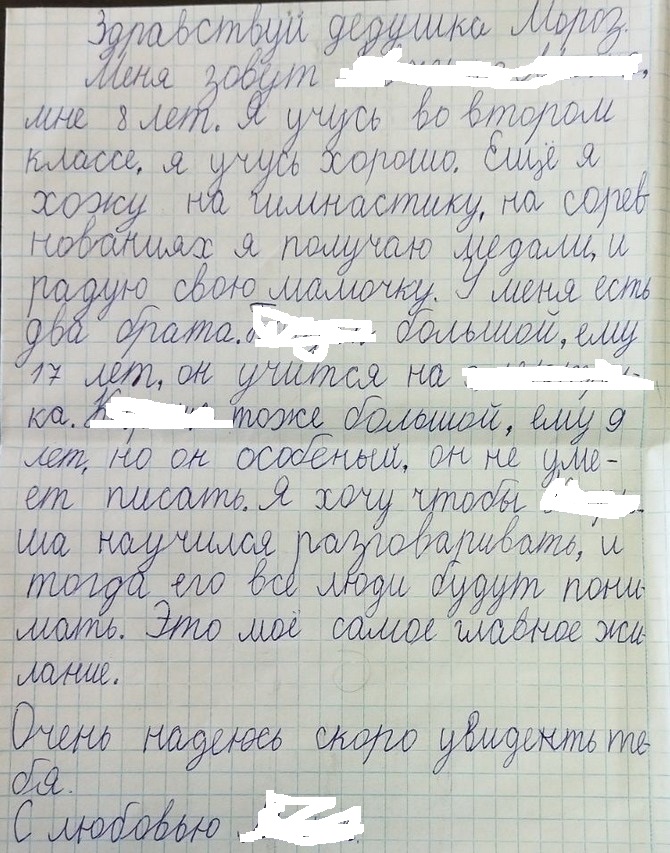 Здравствуй дедушка Мороз.
Меня зовут
мне 8 лет. Я учусь во втором
классе, я учусь хорошо. Ещё я
хожу на гимнастику, на сорев
нованиях я получаю медали, и
радую свою мамочку. У меня есть
два брата. большой, ему
17 лет, он учится на
ка. тоже большой, ему 9
лет, но он особеный, он не уме-
ет писать. Я хочу чтобы
ша научился разговаривать, и
тогда его все люди будут пони-
мать. Это моё самое главное жи-
лание.
Очень надеюсь скоро увидеть те-
бя.
С любовью